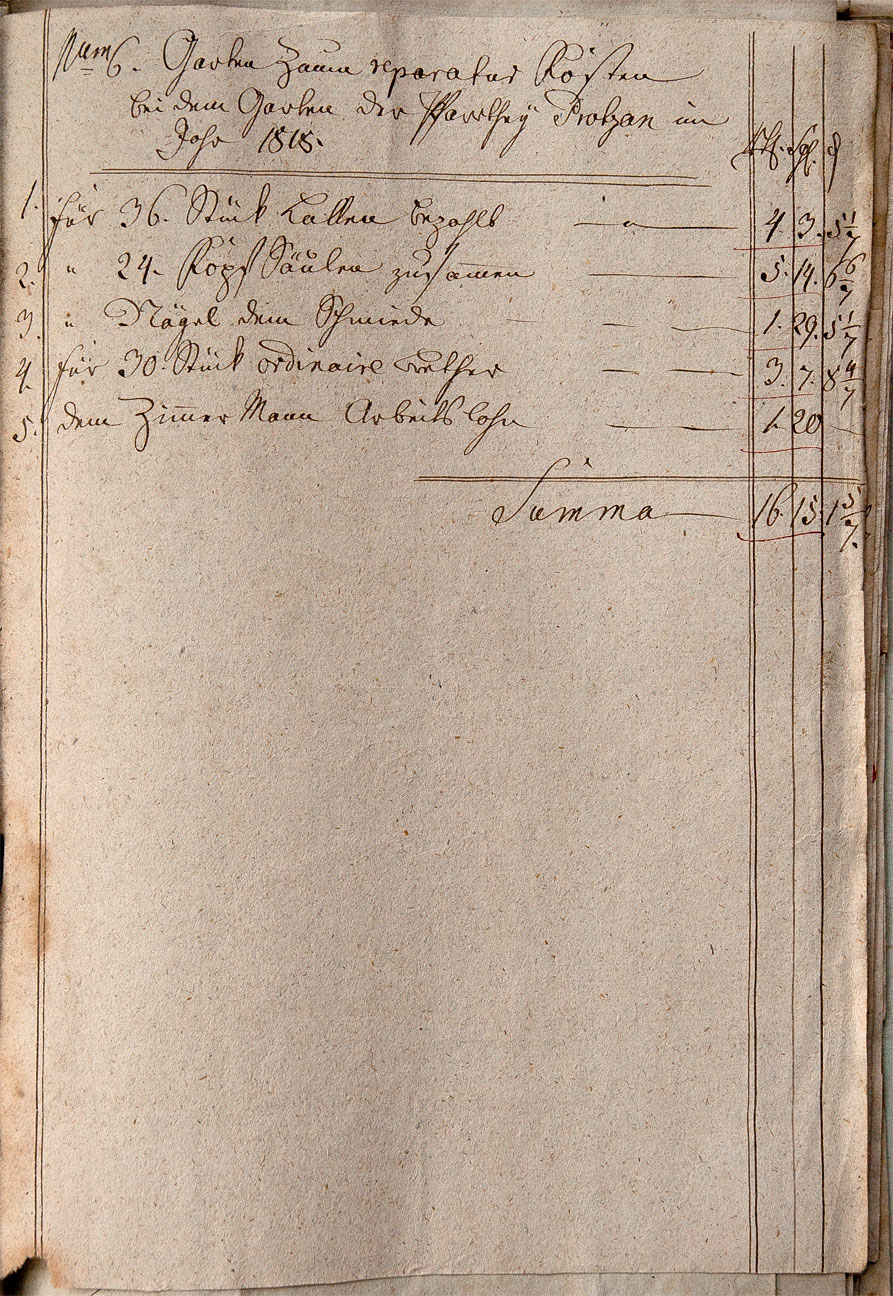 Num 6. Garten Zaun reparatur Kösten
bei dem Garten der Pfarrthey Protzan im
Jahr 1818.
Rth. Sgl. d
1. für 36. Stük Latten bezahlt — 4 3. 5 1/7
2. " 24. Köpf Säulen zusammen — 5. 14. 6 6/7
3. " Nägel dem Schmiede — 1. 29. 5 1/7
4. für 30. Stück ordinaire Bretter — 3. 7. 8 4/7
5. dem Zim̄er Mann Arbeitslohn — 1. 20 —
Summa — 16. 15. 1 5/7.